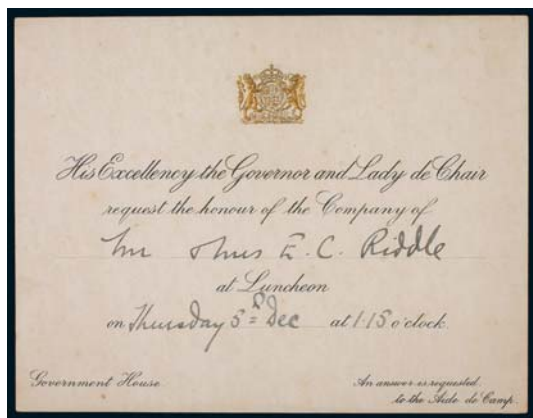 His Excellency the Governor and Lady de Chair
request the honour of the Company of
Mr & Mrs E. C. Riddle
at Luncheon
on Thursday 5th Dec at 1.15 o'clock.
Government House.
An answer is requested
to the Aide de Camp.